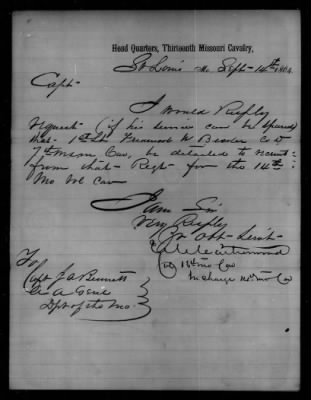 Head Quarters, Thirteenth Missouri Cavalry,
St Louis Mo Sept 14th 1864
Capt
I would Respfly
request (if his service can be spared)
that 1st Lt Freemont W. Co
7th Mo Cav, be detailed to recruit
from that Regt for the 14th
Mo Cav
I am Sir
Very Respfly
Yr Obt Servt
13th Mo Cav
In charge Mo Cav
To
Capt J A Bennett
A A Genl
Dpt of the Mo.